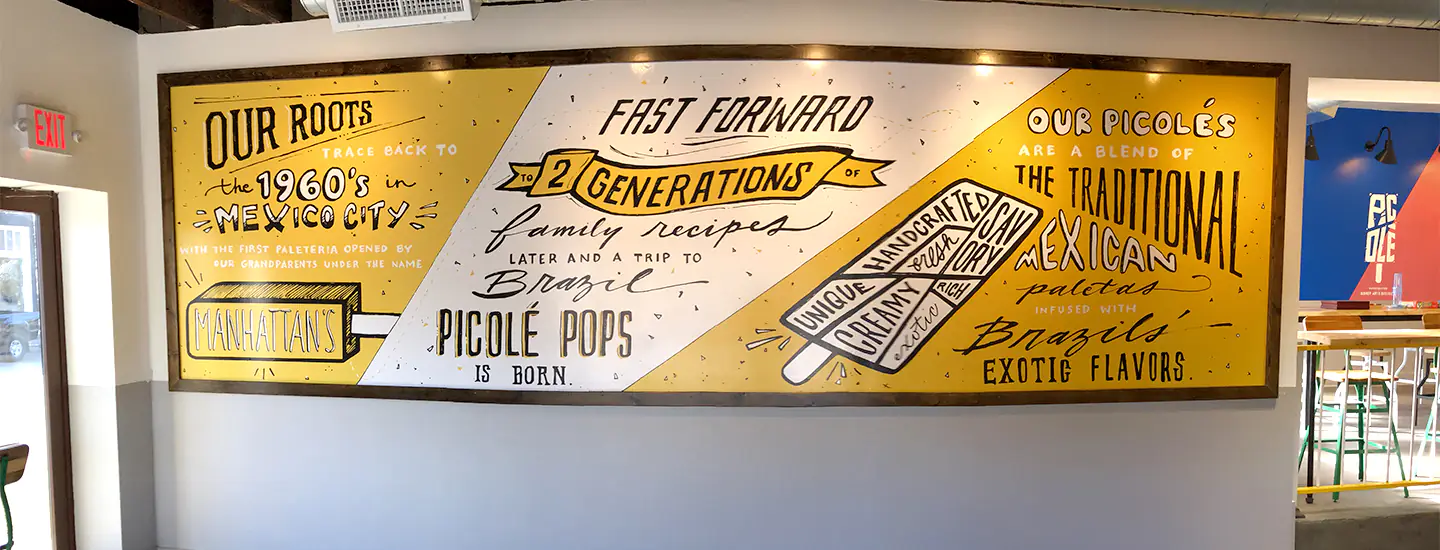 EXIT
OUR ROOTS
TRACE BACK TO
the 1960's in
MEXICO CITY
WITH THE FIRST PALETERIA OPENED BY
OUR GRANDPARENTS UNDER THE NAME
MANHATTAN'S
FAST FORWARD
TO 2 GENERATIONS OF
family recipes
LATER AND A TRIP TO
Brazil
PICOLÉ POPS
IS BORN.
UNIQUE HANDCRAFTED
fresh
SAVORY
CREAMY
RICH
exotic
OUR PICOLÉS
ARE A BLEND OF
THE TRADITIONAL
MEXICAN
paletas
INFUSED WITH
Brazils'
EXOTIC FLAVORS.
PIC
OLE